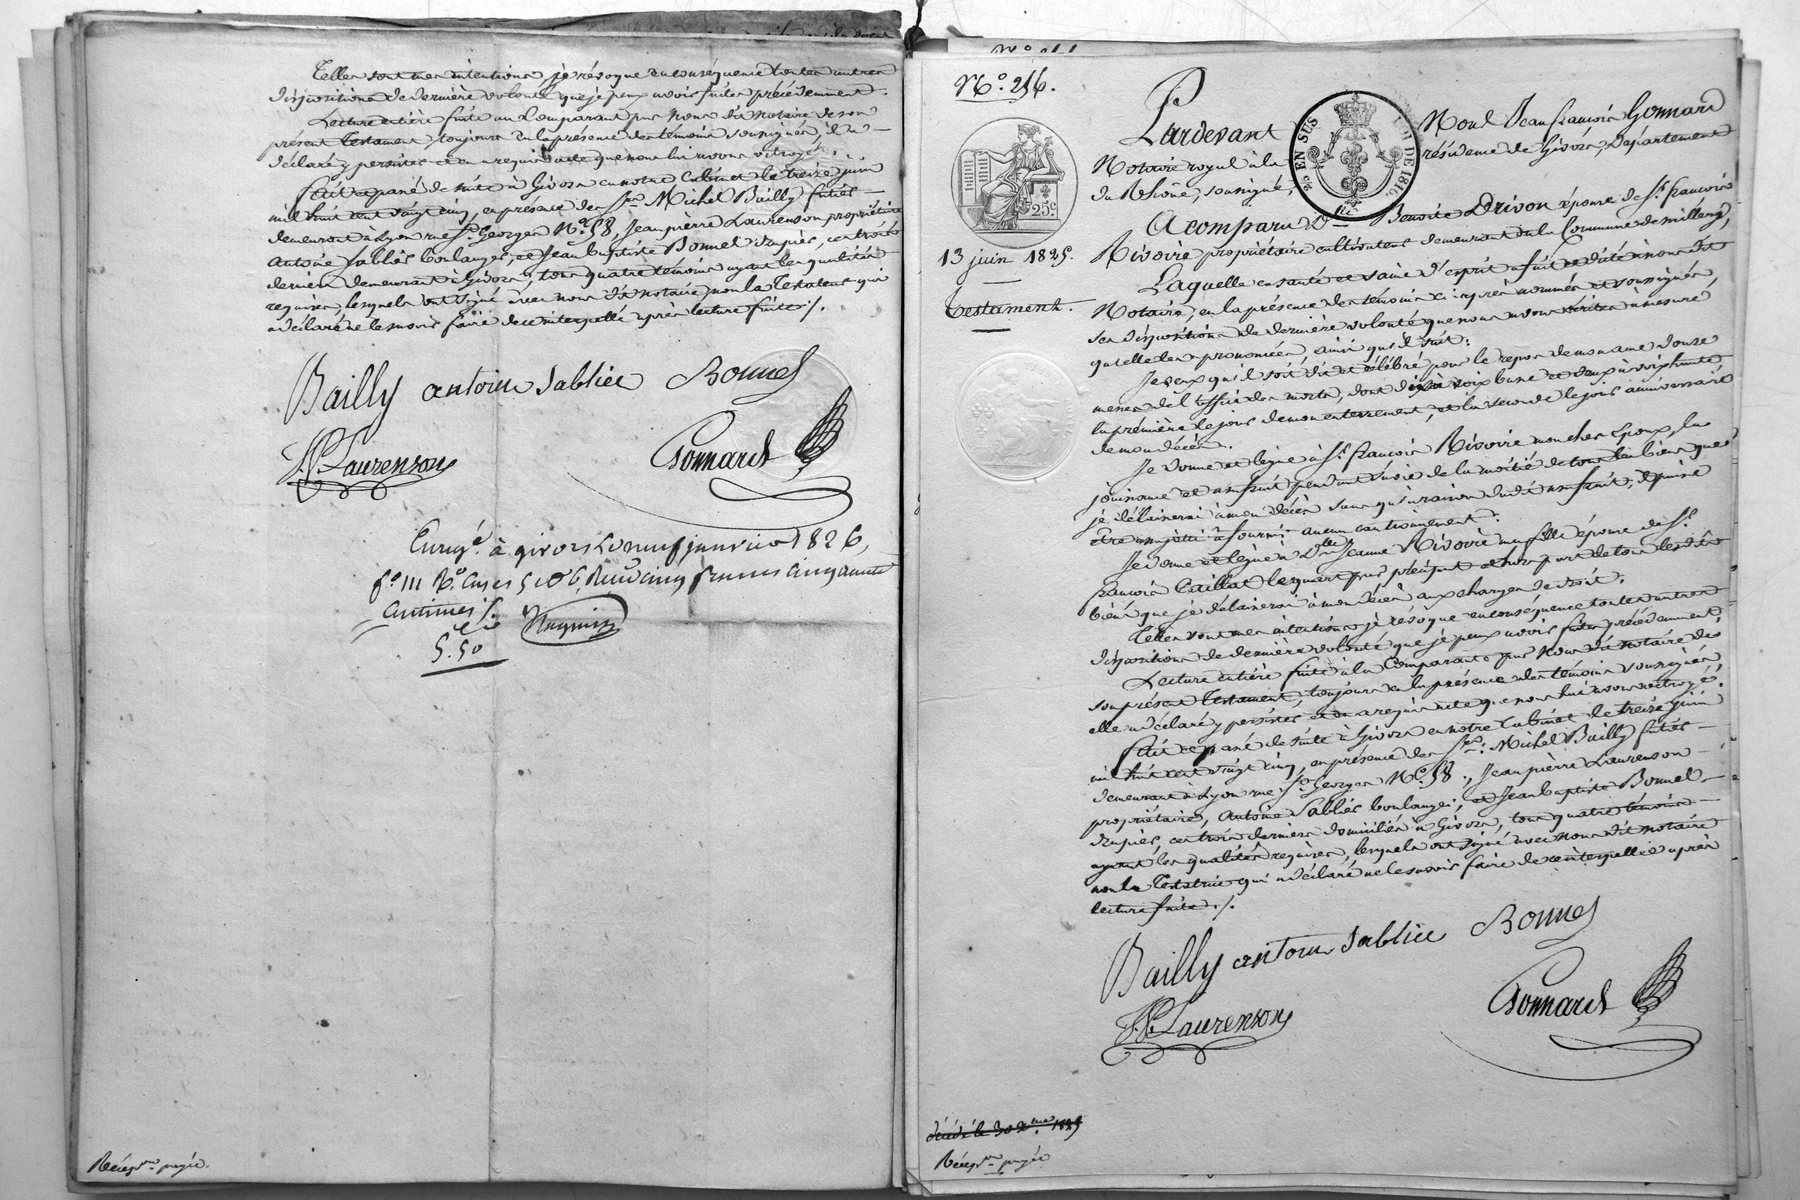 Telles sont mes intentions, je révoque en conséquence toutes autres
dispositions de dernière volonté que je peux avoir faites précédemment.
Lecture entière faite au Comparant par Nous dit Notaire de son
présent Testament, toujours en la présence des témoins soussignés, il a
déclaré y persister et en a requis acte que nous lui avons octroyé.
Fait et passé de suite à Givors en notre Cabinet le treize juin
mil huit cent vingt cinq, en présence des Srs Michel Bailly
demeurant à Lyon rue St Georges No 58, Jean pierre Laurenson propriétaire
Antoine Sablier boulanger, et Jean baptiste Bonnel drapier, ces trois
derniers demeurant à Givors, tous quatre témoins ayant les qualités
requises, lesquels ont signé avec nous dit notaire, non le Testateur qui
a déclaré ne le savoir faire de ce interpellé après lecture faite ./.
Bailly antoine Sabliee Bonnel
JP Laurenson
Gonnard
Enregé à givors le neuf janvier 1826,
fo 111 Ro cases 5 et 6, Reçu cinq francs cinquante
centimes ./.
5.50
Récepon payée.
No. 216.
25 c
2c EN SUS
DE 1816
13 juin 1825.
Testament.
Pardevant Nous Jean françois Gonnard
Notaire royal à la résidence de Givors, Département
du Rhône, soussigné,
A comparu Dlle Benoite Drivon épouse de Sr françois
Rivoire propriétaire cultivateur demeurant en la Commune de millery,
Laquelle en santé et saine d'esprit a fait et dicté à nous dit
Notaire, en la présence des témoins ci après nommés et soussignés,
ses dispositions de dernière volonté que nous avons écrites à mesure
qu'elle les a prononcées, ainsi qu'il suit:
Je veux qu'il soit dit et célébré pour le repos de mon ame douze
messes de l'office des morts, dont dix à voix basse et deux à voix haute
la première le jour de mon enterrement, et la seconde le jour anniversaire
de mon décès.
Je donne et lègue à Sr françois Rivoire mon cher Epoux, la
jouissance et usufruit pendant sa vie de la moitié de tous les biens que
je délaisserai à mon décès sans qu'à raison dudit usufruit, il puisse
être assujetti à fournir aucun cautionnement.
Je donne et lègue à Dlle Jeanne Rivoire ma fille épouse de Sr
françois Caillat le quart par préciput et hors part de tous les dits
biens que je délaisserai à mon décès aux charges de droit.
Telles sont mes intentions, je révoque en conséquence toutes autres
dispositions de dernière volonté que je peux avoir faites précédemment.
Lecture entière faite à la Comparante par Nous dit notaire de
son présent Testament, toujours en la présence des témoins soussignés,
elle a déclaré y persister et en a requis acte que nous lui avons octroyé.
Fait et passé de suite à Givors en notre Cabinet le treize juin
mil huit cent vingt cinq, en présence des Srs Michel Bailly
demeurant à Lyon rue St Georges No 58, Jean pierre Laurenson
propriétaire, Antoine Sablier boulanger, et Jean baptiste Bonnel
drapier, ces trois derniers domiciliés à Givors, tous quatre témoins
ayant les qualités requises, lesquels ont signé avec nous dit notaire
non la Testatrice qui a déclaré ne le savoir faire de ce interpellée après
lecture faite ./.
Bailly antoine Sabliee Bonnel
JP Laurenson
Gonnard
décédé le 30 Xbre 1825
Récepon payée